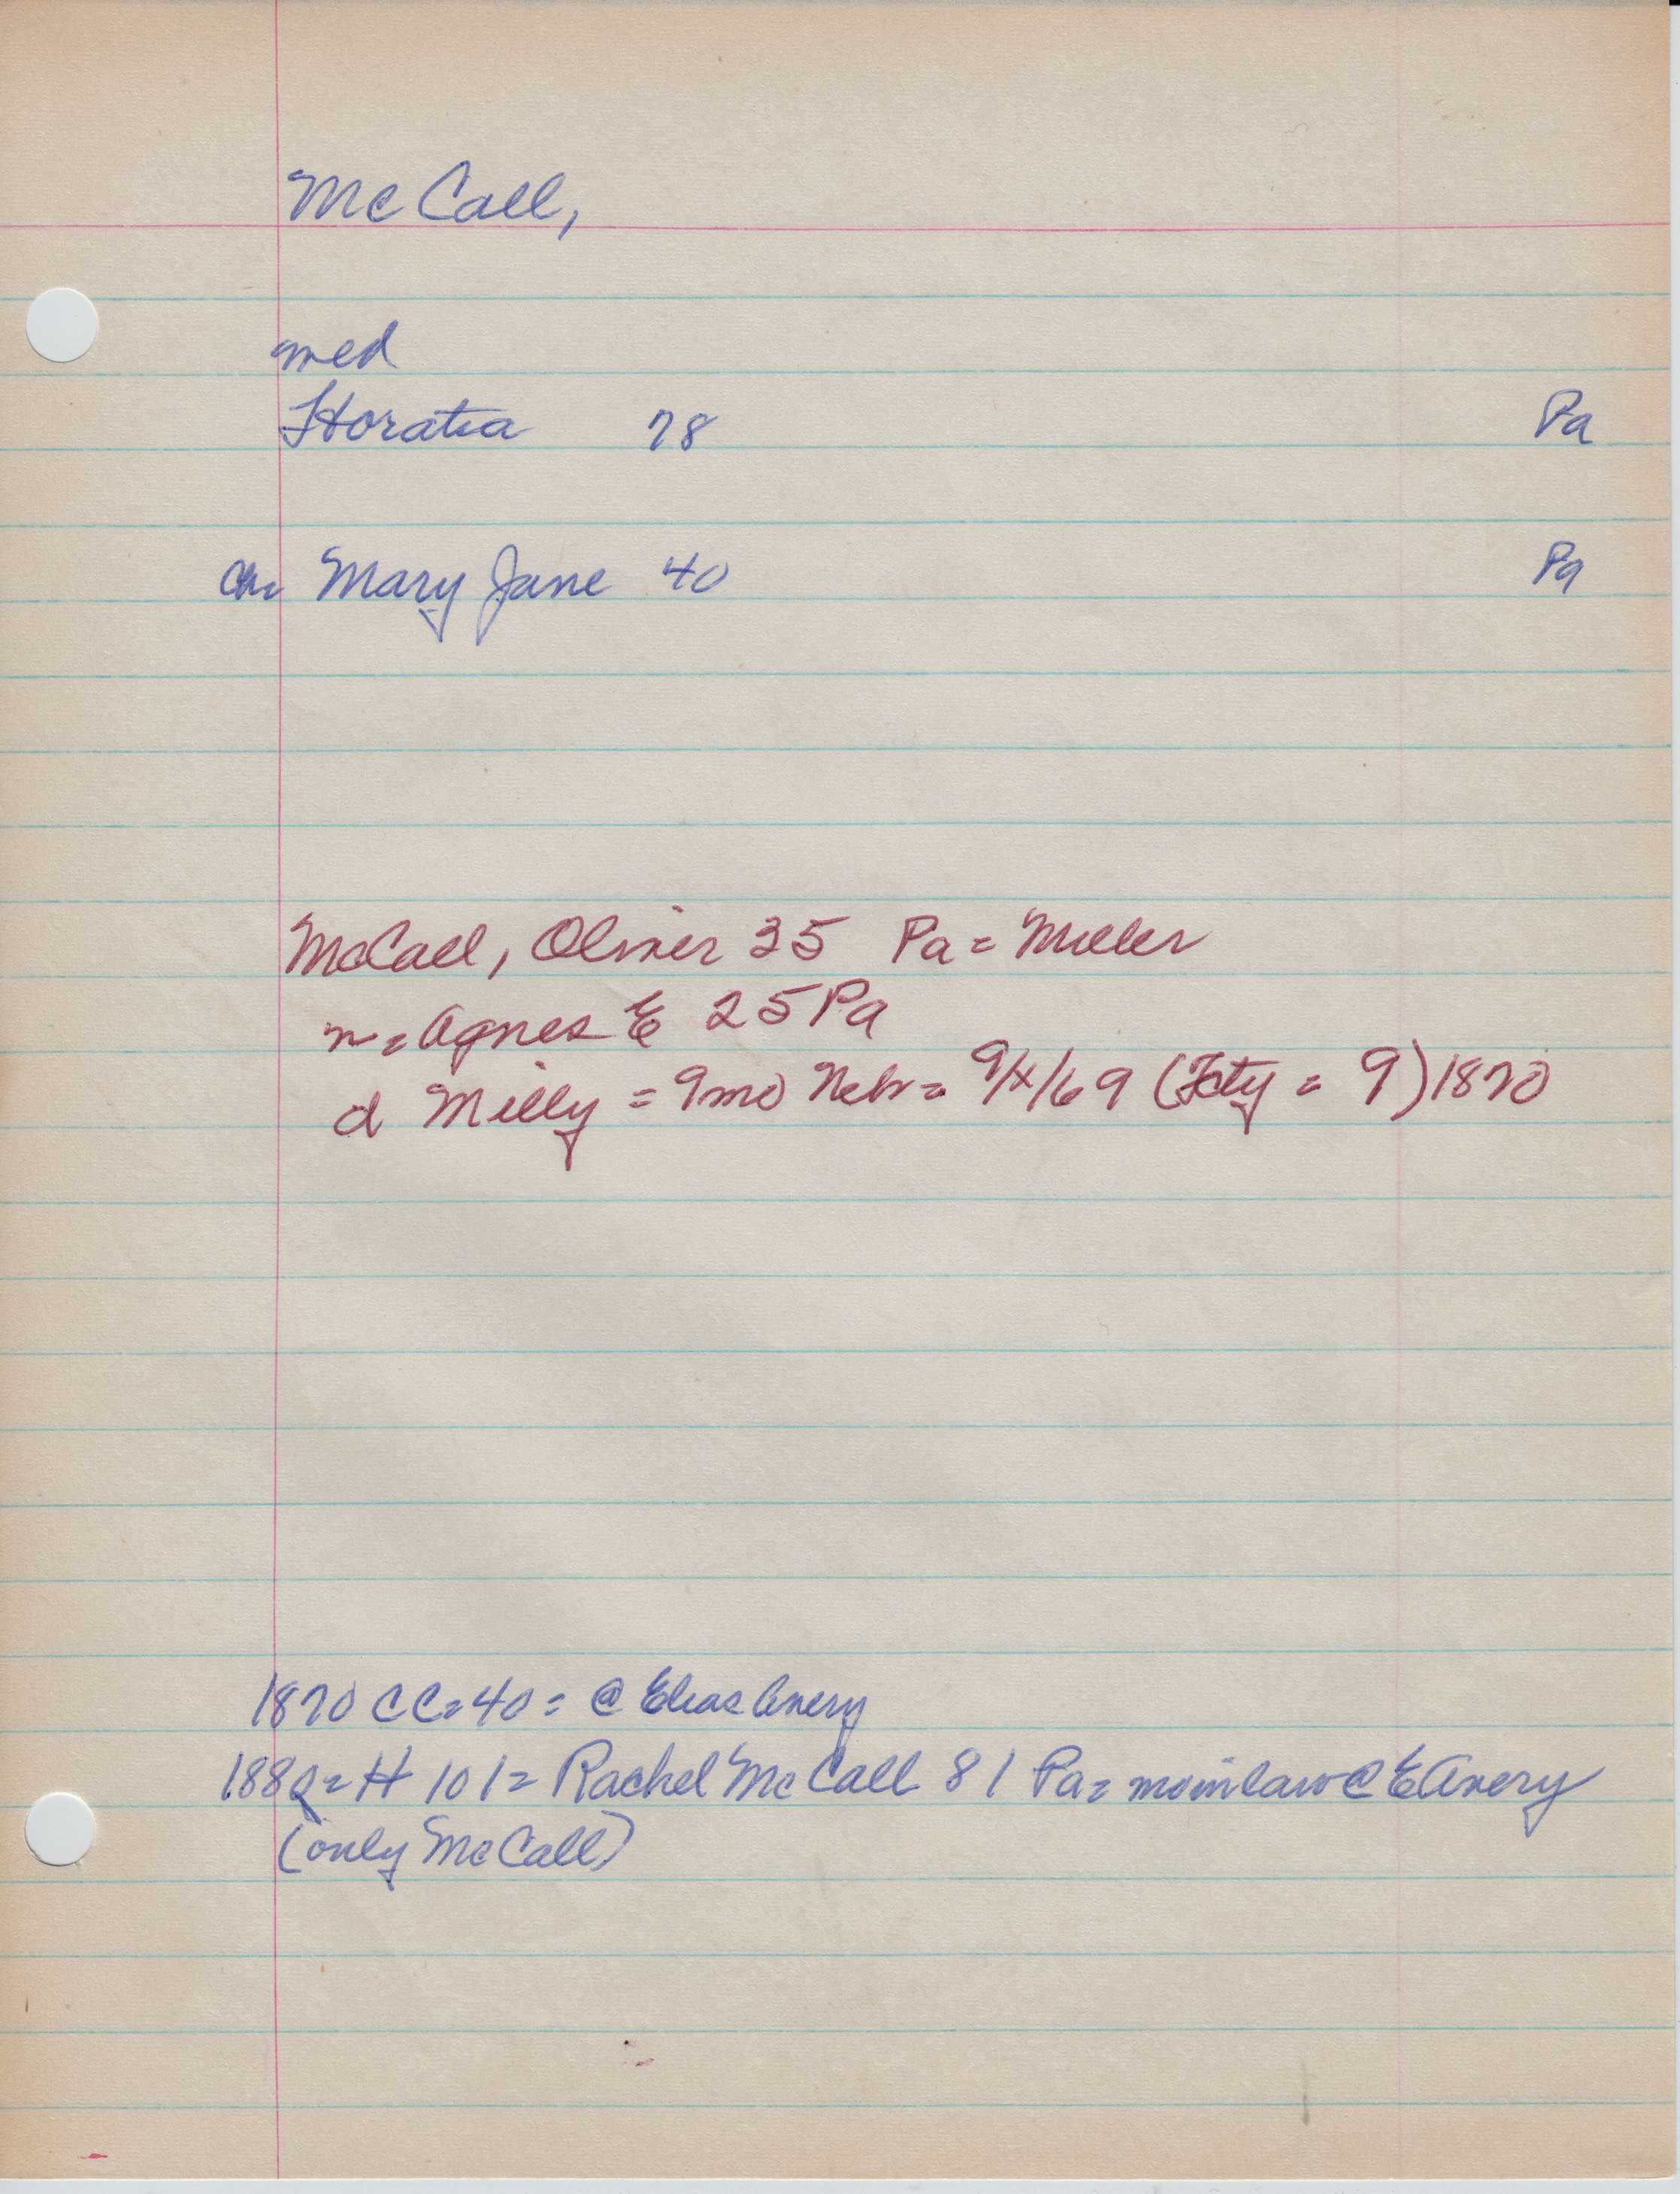 McCall,
med
Horatia 78 Pa
ch Mary Jane 40 Pa
McCall, Oliver 35 Pa = Miller
m = Agnes E 25 Pa
d Milly = 9mo Neb = 9/X/69 (Fcty = 9) 1870
1870 CC = 40 = @ Elias Avery
1880 = H 101 = Rachel McCall 81 Pa = moinlaw @ E Avery
(only McCall)